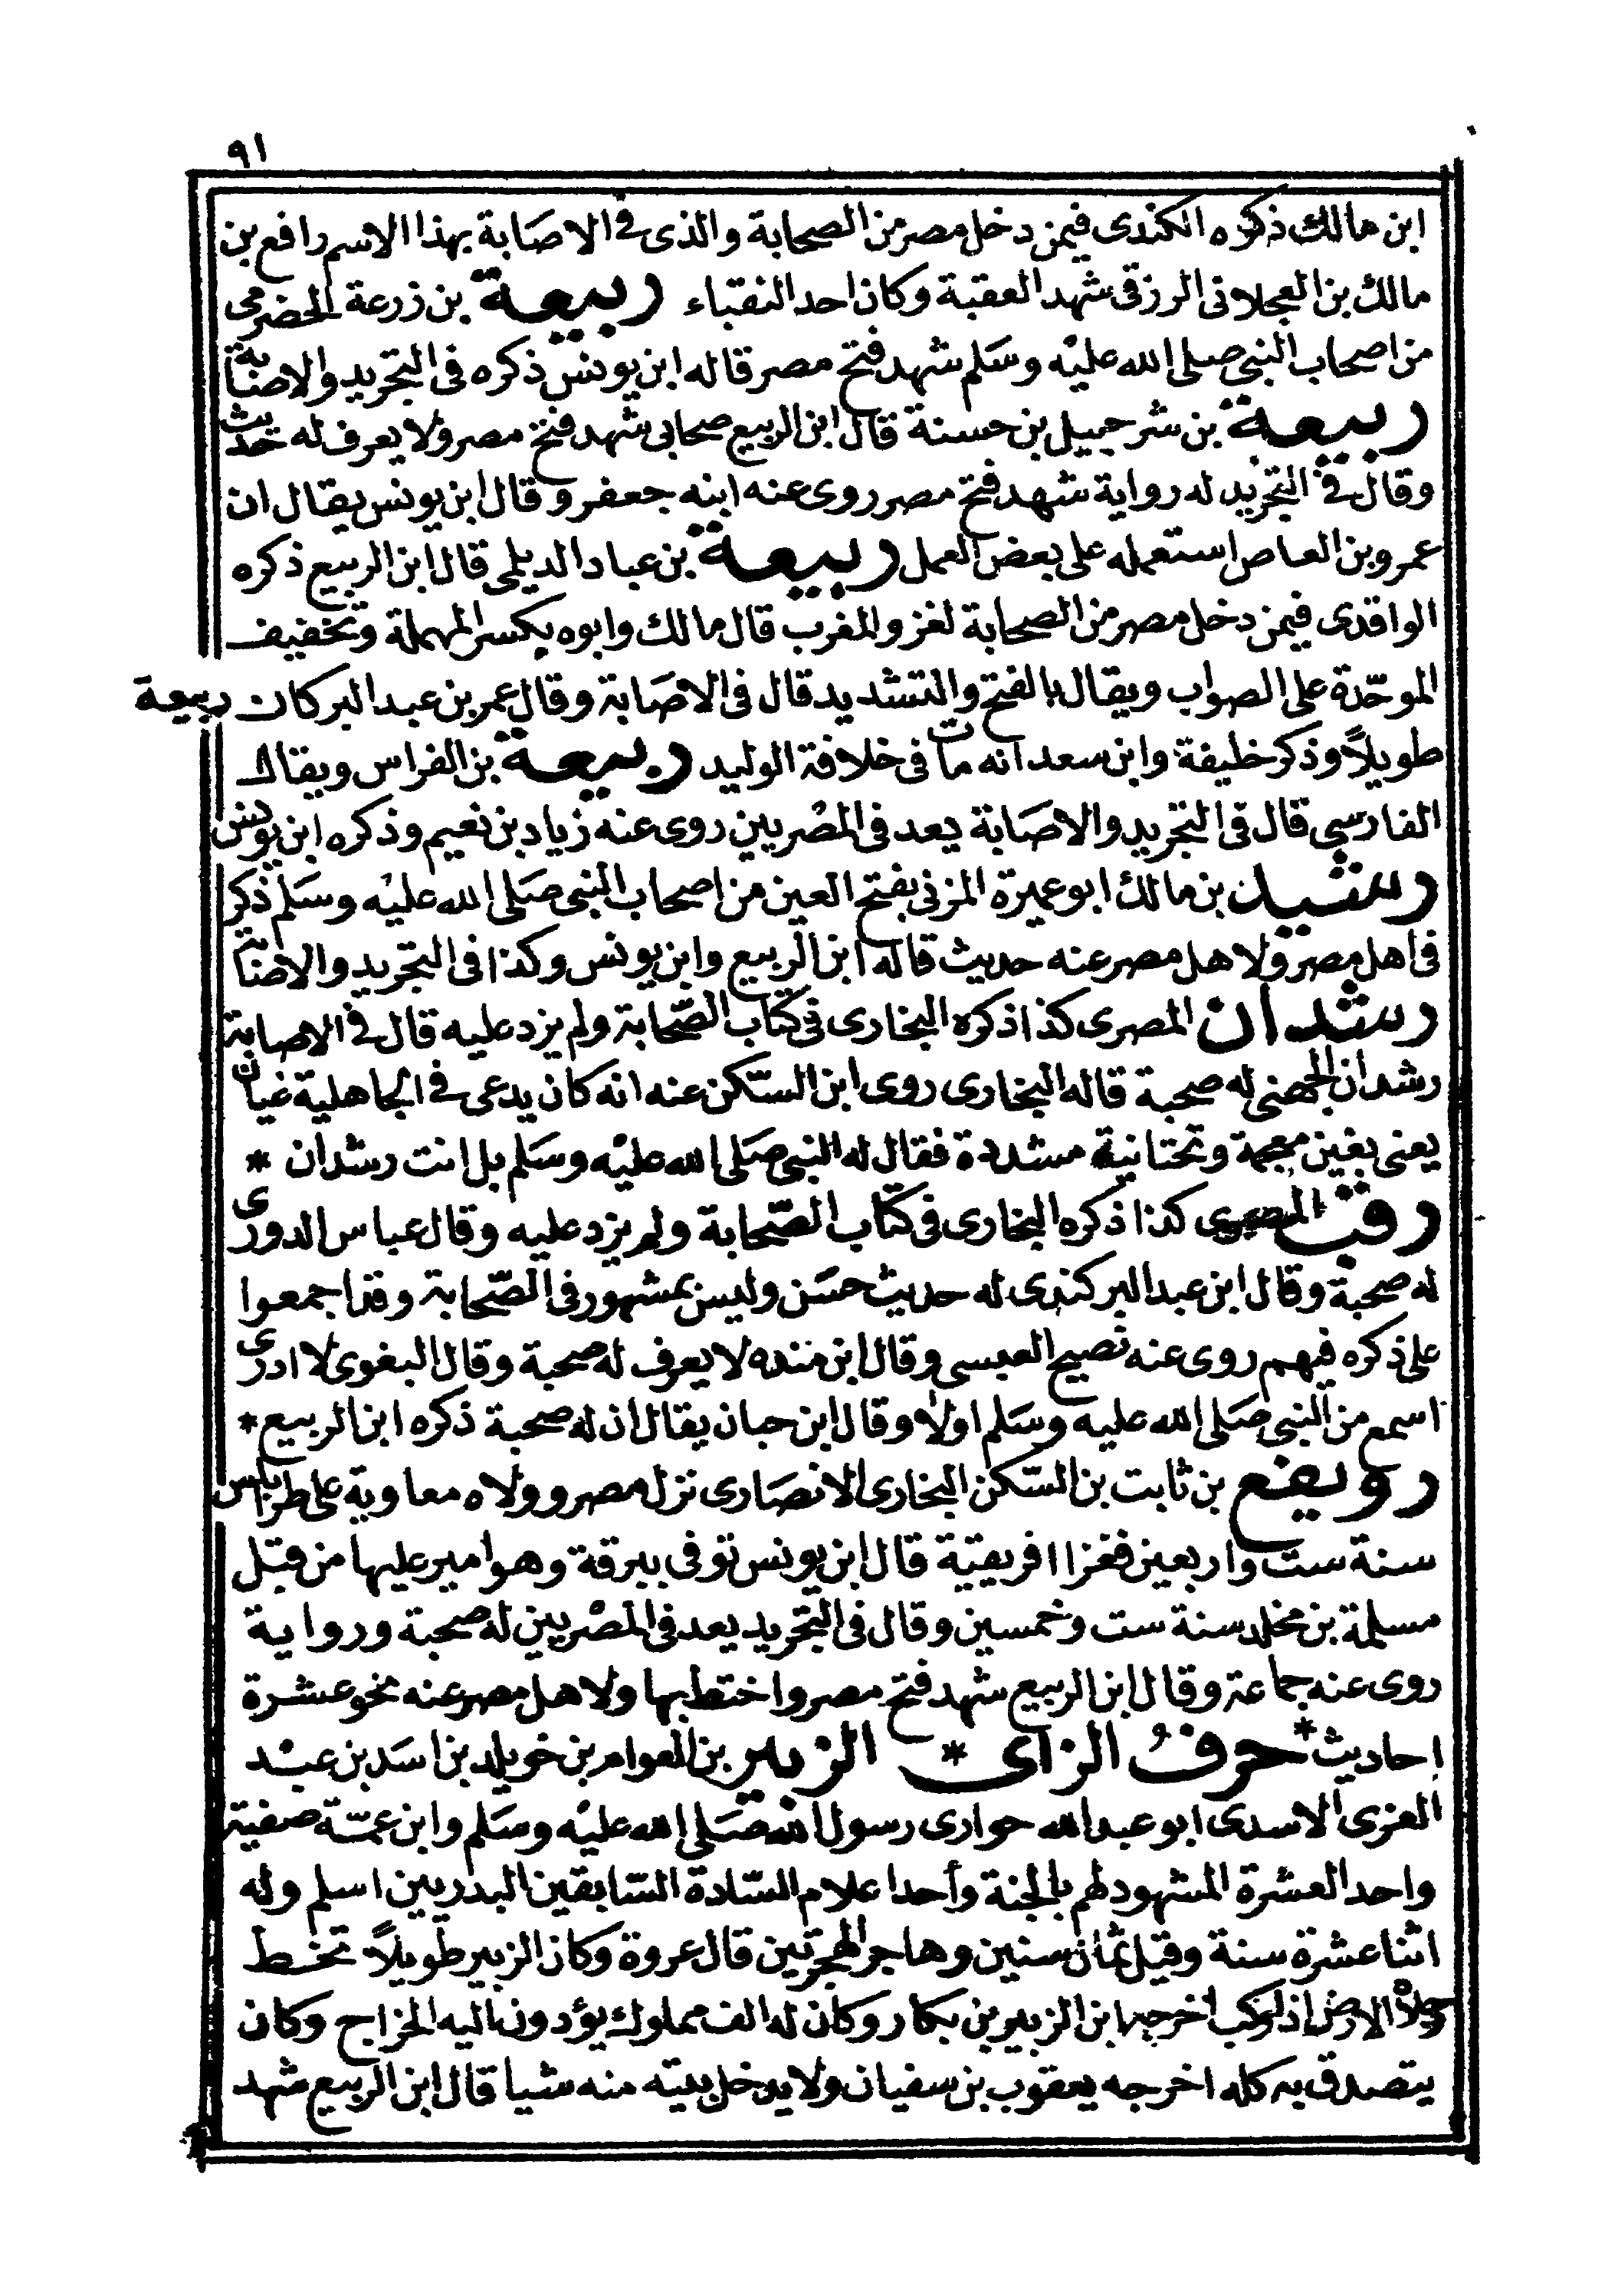 ٩١
ابن مالك ذكره الكندى فيمن دخل مصر من الصحابة والذى فى الاصابة بهذا الاسم رافع بن
مالك بن العجلانى الرزقى شهد العقبة وكان احد النقباء ربيعة بن زرعة الحضرمى
من اصحاب النبى صلى الله عليه وسلم شهد فتح مصر قاله ابن يونس ذكره فى التجريد والاصابة
ربيعة بن شرحبيل بن حسنة قال ابن الربيع صحابى شهد فتح مصر ولا يعرف له حديث
وقال فى التجريد له رواية شهد فتح مصر روى عنه ابنه جعفر وقال ابن يونس يقال ان
عمرو بن العاص استعمله على بعض العمل ربيعة بن عباد الديلمى قال ابن الربيع ذكره
الواقدى فيمن دخل مصر من الصحابة لغزو المغرب قال مالك وابوه بكسر المهملة وتخفيف
الموحّدة على الصواب ويقال بالفتح والتشديد قال فى الاصابة وقال عمر بن عبد البر كان ربيعة
طويلاً وذكر خليفة وابن سعد انه مات فى خلافة الوليد ربيعة بن الفراس ويقال
الفارسى قال فى التجريد والاصابة يعد فى المصريين روى عنه زياد بن نعيم وذكره ابن يونس
رشيد بن مالك ابو عميرة المزنى بفتح العين من اصحاب النبى صلى الله عليه وسلم ذكر
فى اهل مصر ولاهل مصر عنه حديث قاله ابن الربيع وابن يونس وكذا فى التجريد والاصابة
رشدان المصرى كذا ذكره البخارى فى كتاب الصّحابة ولم يزد عليه قال فى الاصابة
رشدان الجهنى له صحبة قاله البخارى روى ابن السّكن عنه انه كان يدعى فى الجاهلية غيان
يعنى بغين معجمة وتحتانية مشددة فقال له النبى صلى الله عليه وسلم بل انت رشدان *
رقب المصرى كذا ذكره البخارى فى كتاب الصّحابة ولم يزد عليه وقال عباس الدورى
له صحبة وقال ابن عبد البر كندى له حديث حسن وليس بمشهور فى الصّحابة وقد اجمعوا
على ذكره فيهم روى عنه نصيح العبسى وقال ابن منده لا يعرف له صحبة وقال البغوى لا ادرى
اسمع من النبى صلى الله عليه وسلم اولا وقال ابن حبان يقال ان له صحبة ذكره ابن الربيع *
رويفع بن ثابت بن السّكن البخارى الانصارى نزل مصر وولاه معاوية على طرابلس
سنة ست واربعين فغزا افريقية قال ابن يونس توفى ببرقة وهو امير عليها من قبل
مسلمة بن مخلد سنة ست وخمسين وقال فى التجريد يعد فى المصريين له صحبة ورواية
روى عنه جماعة وقال ابن الربيع شهد فتح مصر واختط بها ولاهل مصر عنه نحو عشرة
احاديث * حرف الزاى * الزبير بن العوام بن خويلد بن اسد بن عبد
العزى الاسدى ابو عبد الله حوارى رسول الله صلى الله عليه وسلم وابن عمّته صفية
واحد العشرة المشهود لهم بالجنة وأحد اعلام السّادة السّابقين البدريين اسلم وله
اثنا عشرة سنة وقيل ثمان سنين وهاجر الهجرتين قال عروة وكان الزبير طويلاً تخط
رجلاه الارض اذا ركب اخرجها ابن الزبير بن بكار وكان له الف مملوك يؤدون اليه الخراج وكان
يتصدق به كله اخرجه يعقوب بن سفيان ولا يدخل بيته منه شيا قال ابن الربيع شهد